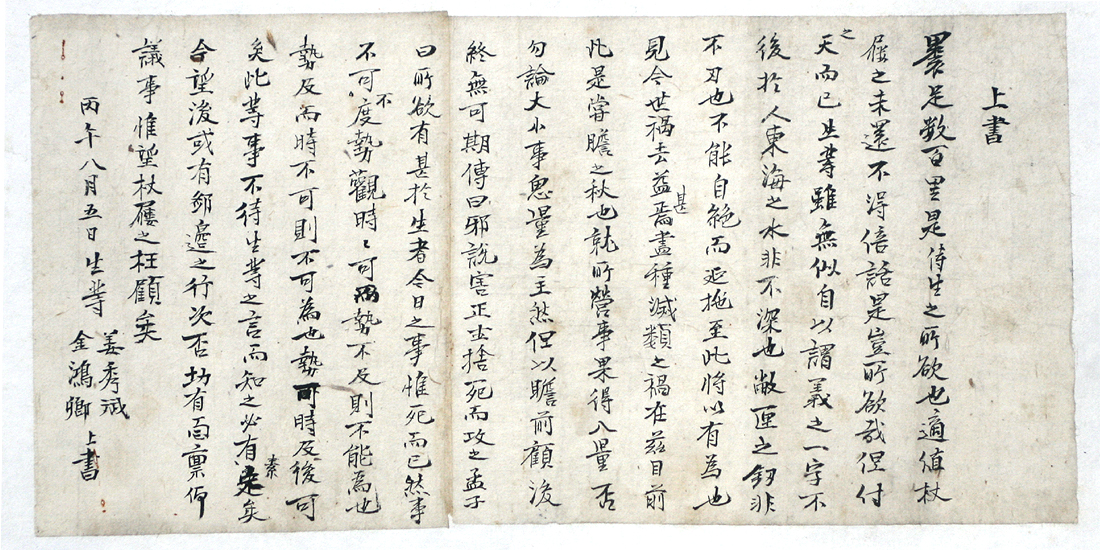 上書
足數百里是侍生之所欲也適値杖
屨之未還不得倍話是豈所欲哉但付
之天而已生等雖無似自以謂義之一字不
後於人東海之水非不深也敝匣之釼非
不刃也不能自絶而延拖至此將以有爲也
見今世禍去益甚焉盡種滅類之禍在玆目前
此是嘗膽之秋也就所營事果得入量否
勿論大小事思量為主然但以瞻前顧後
終無可期傳曰邪說害正士捨死而攻之孟子
曰所欲有甚於生者今日之事惟死而已然事
不可不度勢觀時〻可勢不及則不能為也
勢及而時不可則不可為也勢時及後可
矣此等事不待生等之言而知之必有素矣
合望後或有鄉邊之行次否切有面稟仰
議事惟望杖屨之枉顧矣
丙午八月五日生等
姜秀
金鴻卿
上書